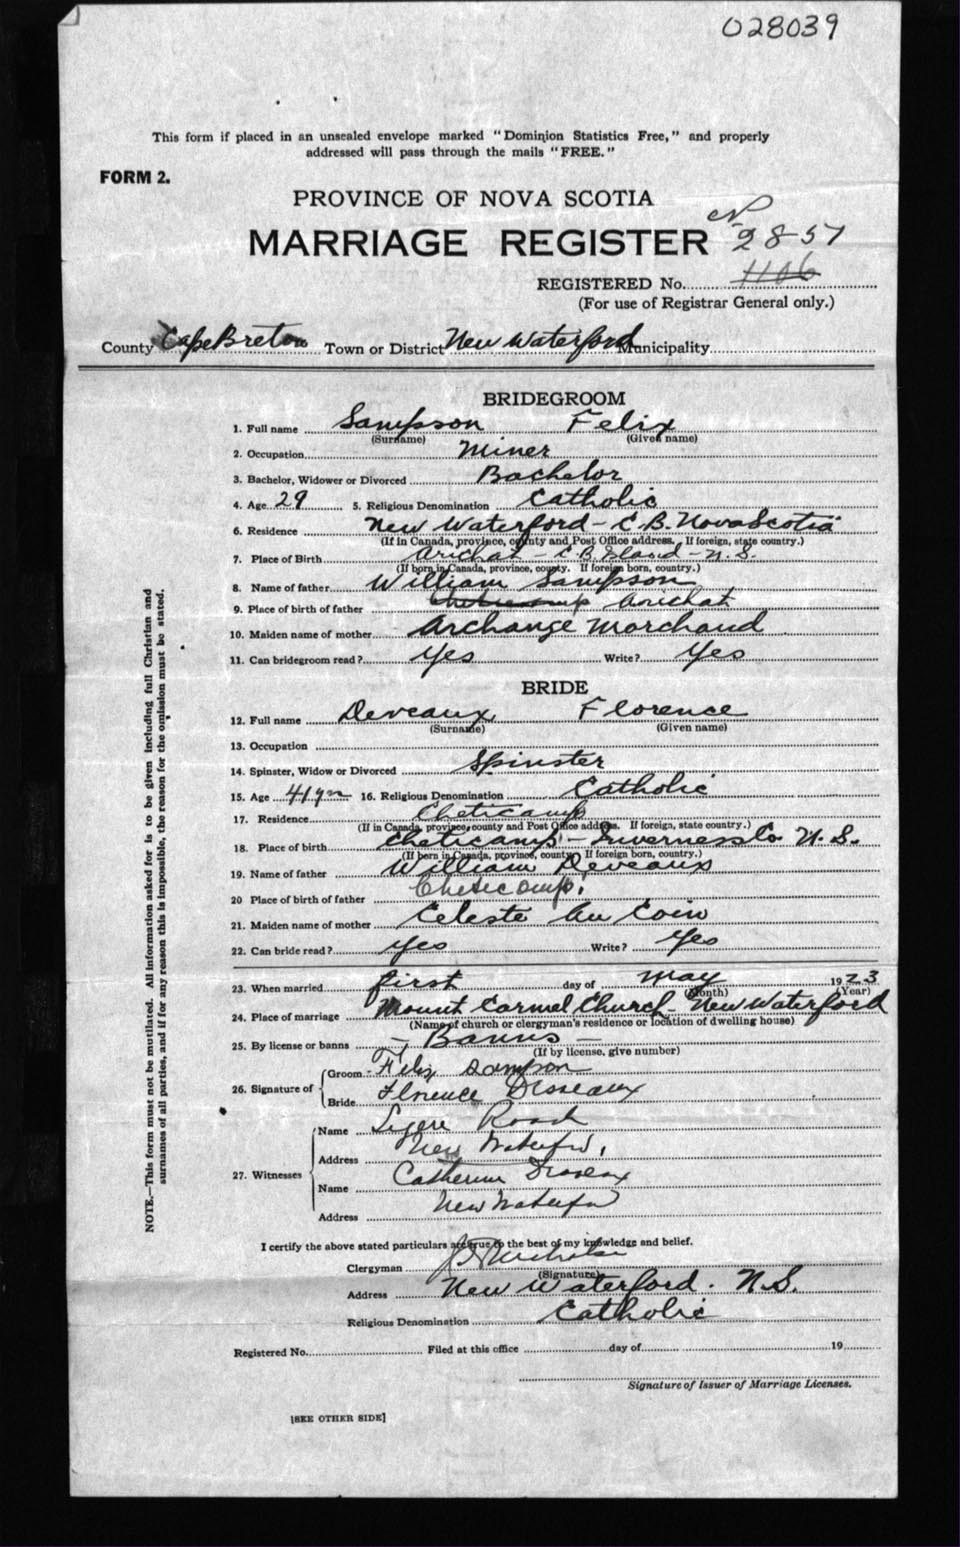 028039
This form if placed in an unsealed envelope marked "Dominion Statistics Free," and properly
addressed will pass through the mails "FREE."
FORM 2.
PROVINCE OF NOVA SCOTIA
MARRIAGE REGISTER 2857
REGISTERED No. 1106
(For use of Registrar General only.)
County Cape Breton Town or District New Waterford Municipality
BRIDEGROOM
1. Full name Sampson Felix
(Surname) (Given name)
2. Occupation Miner
3. Bachelor, Widower or Divorced Bachelor
4. Age 29 5. Religious Denomination Catholic
6. Residence New Waterford - C.B. Nova Scotia
(If in Canada, province, county and Post Office address. If foreign, state country.)
7. Place of Birth Arichat - C.B. Island - N.S.
(If born in Canada, province, county. If foreign born, country.)
8. Name of father William Sampson
9. Place of birth of father Arichat
10. Maiden name of mother Archange Marchand
11. Can bridegroom read? Yes Write? Yes
BRIDE
12. Full name Deveaux Florence
(Surname) (Given name)
13. Occupation
14. Spinster, Widow or Divorced Spinster
15. Age 41 yrs 16. Religious Denomination Catholic
17. Residence Cheticamp
(If in Canada, province, county and Post Office address. If foreign, state country.)
18. Place of birth Cheticamp - Inverness Co. N.S.
(If born in Canada, province, county. If foreign born, country.)
19. Name of father William Deveaux
20 Place of birth of father Cheticamp.
21. Maiden name of mother Celeste Au Coin
22. Can bride read? Yes Write? Yes
23. When married first day of May 1923
(Month) (Year)
24. Place of marriage Mount Carmel Church - New Waterford
(Name of church or clergyman's residence or location of dwelling house)
25. By license or banns - Banns -
(If by license, give number)
26. Signature of Groom Felix Sampson
Bride Florence Disseaux
27. Witnesses
Name Road
Address New Waterford,
Name Catherine
Address New Waterford
I certify the above stated particulars are true to the best of my knowledge and belief.
Clergyman
(Signature)
Address New Waterford. N.S.
Religious Denomination Catholic
Registered No. Filed at this office day of 19
Signature of Issuer of Marriage Licenses.
[SEE OTHER SIDE]
NOTE.—This form must not be mutilated. All information asked for is to be given including full Christian and
surnames of all parties, and if for any reason this is impossible, the reason for the omission must be stated.